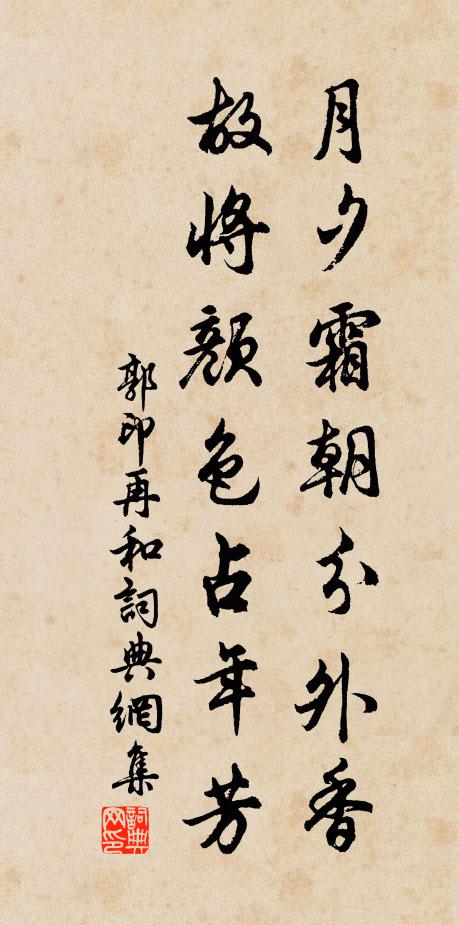 月夕霜朝分外香
故將顏色占年芳
郭印再和詞典網集
詞典網印